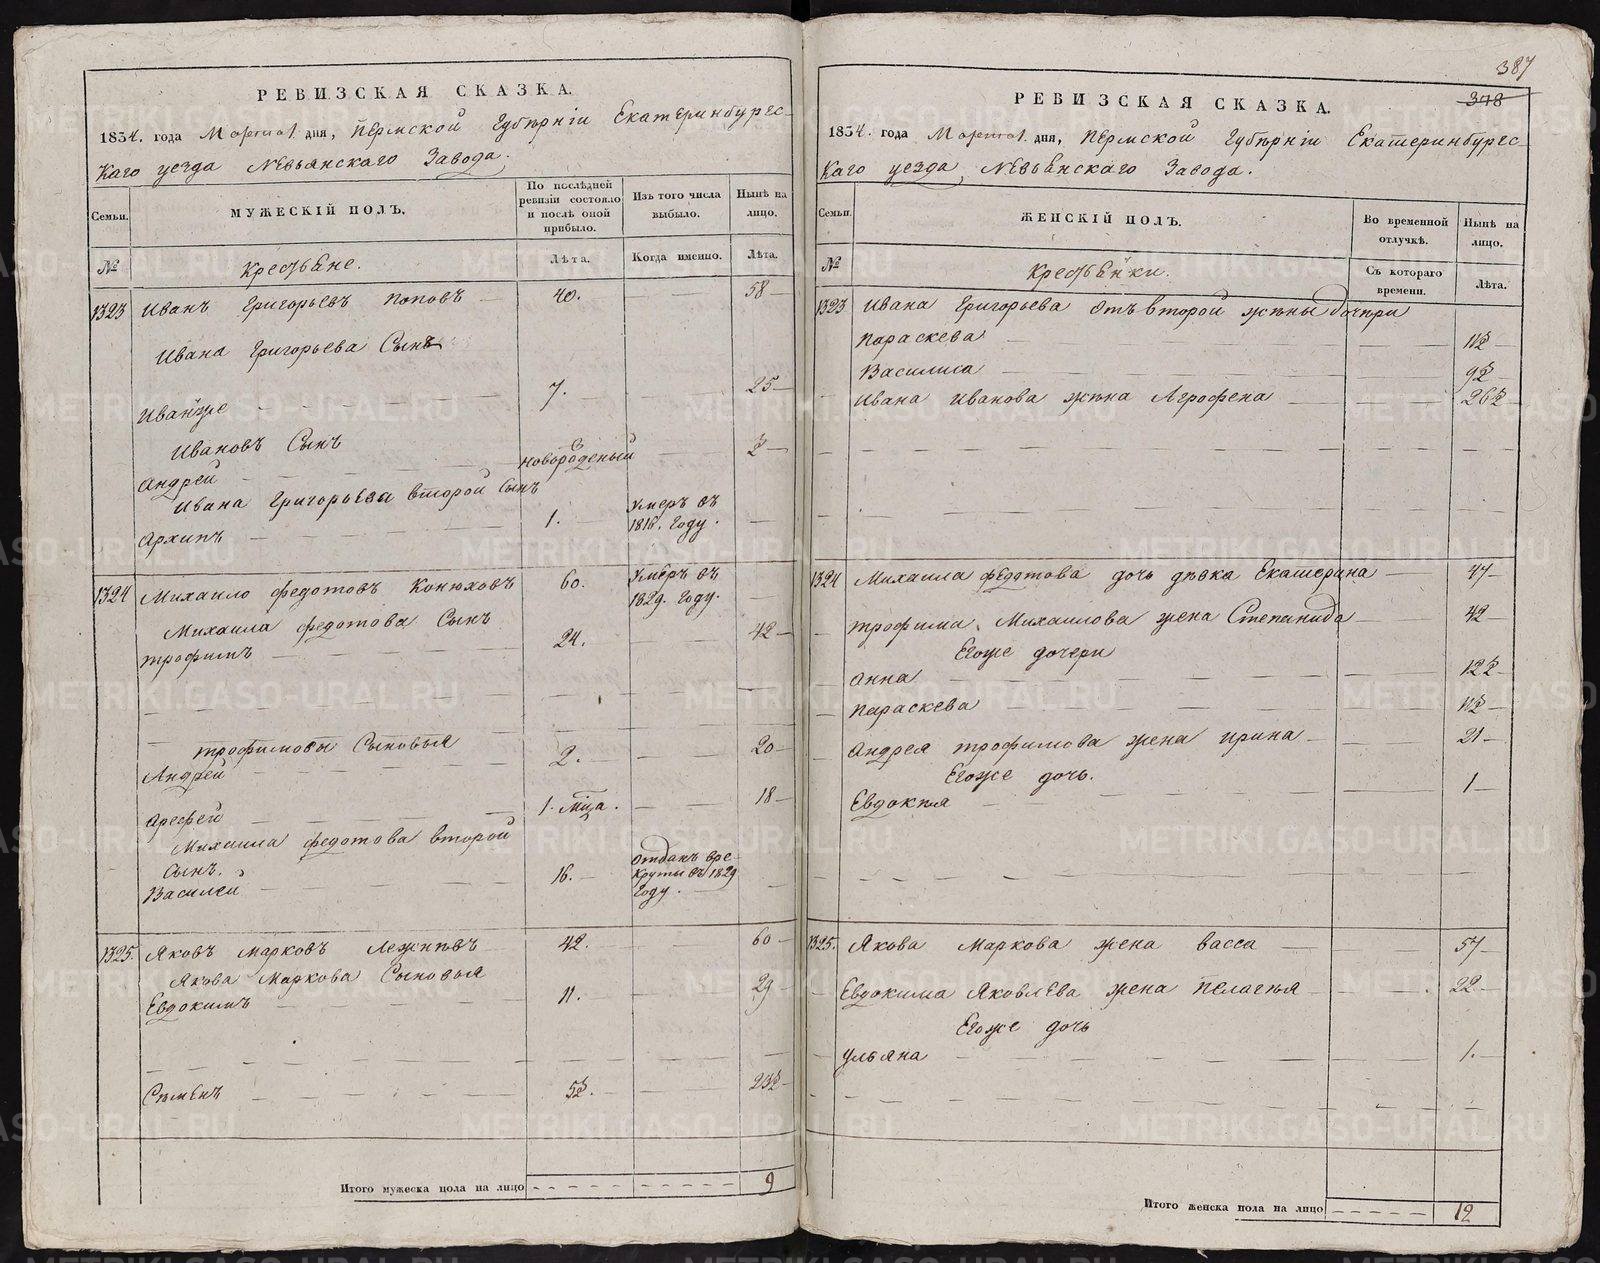 РЕВИЗСКАЯ СКАЗКА.
1834. года Марта 1 дня, Пермской Губѣрніи Екатеринбургс-
Каго уезда Невьянскаго Завода.
Семьи.
МУЖЕСКІЙ ПОЛЪ.
По послѣдней ревизіи состояло и послѣ оной прибыло.
Изъ того числа выбыло.
Нынѣ на лицо.
№
Крестьяне.
Лѣта.
Когда именно.
Лѣта.
1323 Иванъ Григорьевъ Поповъ 40. 58
Ивана Григорьева Сынъ
Иванже 7. 25
Ивановъ Сынъ
Андрей новорожденый
Ивана Григорьева второй Сынъ
Архипъ 1. Умеръ въ 1816. Году.
1324 Михаило Федотовъ Конюховъ 60. Умеръ въ 1829. Году.
Михаила Федотова Сынъ
Трофимъ 24. 42
Трофимовы Сыновья
Андрей 2. 20
Арефей 1. мца. 18
Михаила Федотова второй
Сынъ.
Василей 16. Отданъ вре-
круты въ 1829
Году.
1325. Яковъ Марковъ Лежневъ 42. 60
Якова Маркова Сыновья
Евдокимъ 11. 29
Семенъ 5½. 23½
Итого мужеска пола на лицо 9
387
378
РЕВИЗСКАЯ СКАЗКА.
1834. года Марта 1 дня, Пермской Губѣрніи Екатеринбургс-
Каго уезда, Невьянскаго Завода.
Семьи.
ЖЕНСКІЙ ПОЛЪ.
Во временной отлучкѣ.
Нынѣ на лицо.
№
Крестьянки.
Съ котораго времени.
Лѣта.
1323 Ивана Григорьева отъ второй жены дочери
Параскева 11½
Василиса 9½
Ивана Иванова жена Агрофена 26½
1324 Михаила Федотова дочь девка Екатерина 47
Трофима Михаилова жена Степанида 42
Егоже дочери
Анна 12½
Параскева 11½
Андрея Трофимова жена Ирина 21
Егоже дочь.
Евдокия 1
1325. Якова Маркова жена Васса 57
Евдокима Яковлева жена Пелагея 22
Егоже дочь
Ульяна 1.
Итого женска пола на лицо 12
METRIKI.GASO-URAL.RU